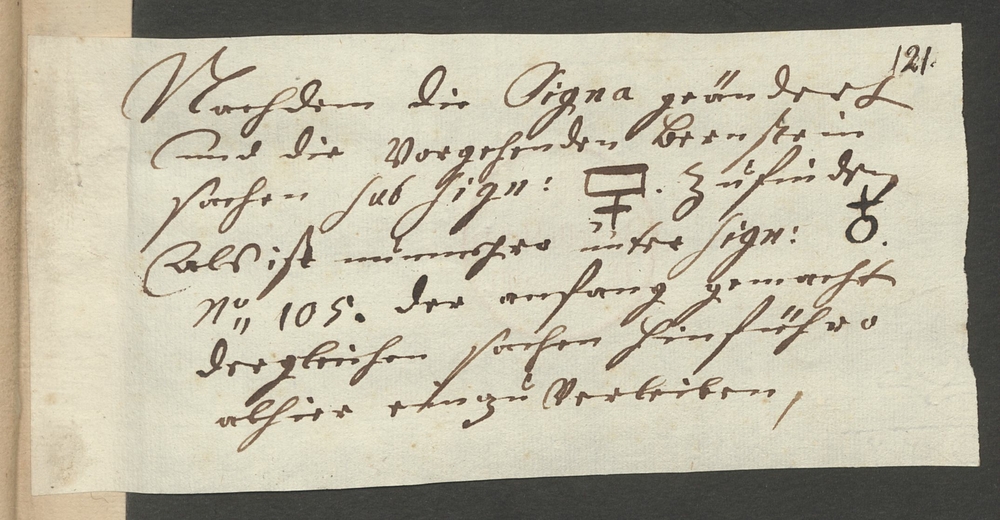 121.
Nachdem die Signa geändert
und die Vorgehenden Bernstein
sachen sub sign: . Zufinden
Als ist nunmehro unter sign: ♁.
No,, 105. der anfang gemacht
dergleichen sachen hinführo
alhier einzuverleiben,